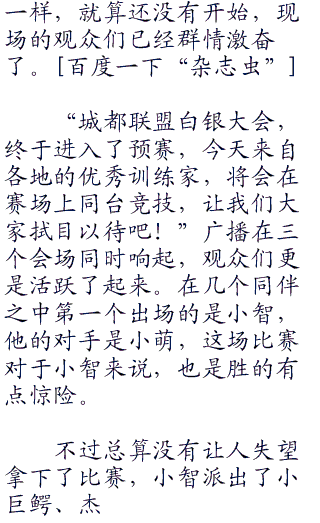 一样，就算还没有开始，现
场的观众们已经群情激奋
了。[百度一下“杂志虫”]
“城都联盟白银大会，
终于进入了预赛，今天来自
各地的优秀训练家，将会在
赛场上同台竞技，让我们大
家拭目以待吧！”广播在三
个会场同时响起，观众们更
是活跃了起来。在几个同伴
之中第一个出场的是小智，
他的对手是小萌，这场比赛
对于小智来说，也是胜的有
点惊险。
不过总算没有让人失望
拿下了比赛，小智派出了小
巨鳄、杰